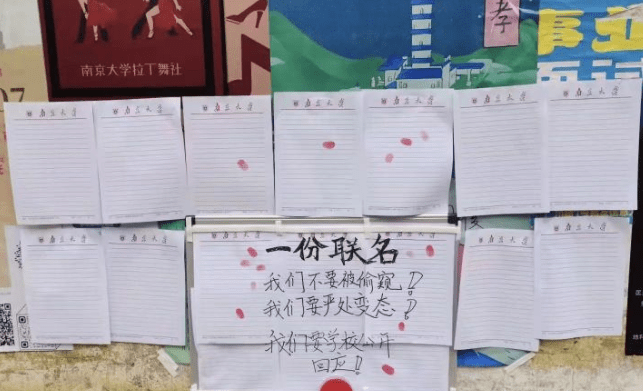 孝
事业
南京大学拉丁舞社
07
南京大学
南京大学
南京大学
南京大学
南京大学
南京大学
南京大学
南京大学
南京大学
南京大学
南京大学
南京大学
南京大学
一份联名
我们不要被偷窥！
我们要严处变态！
我们要学校公开
回应！